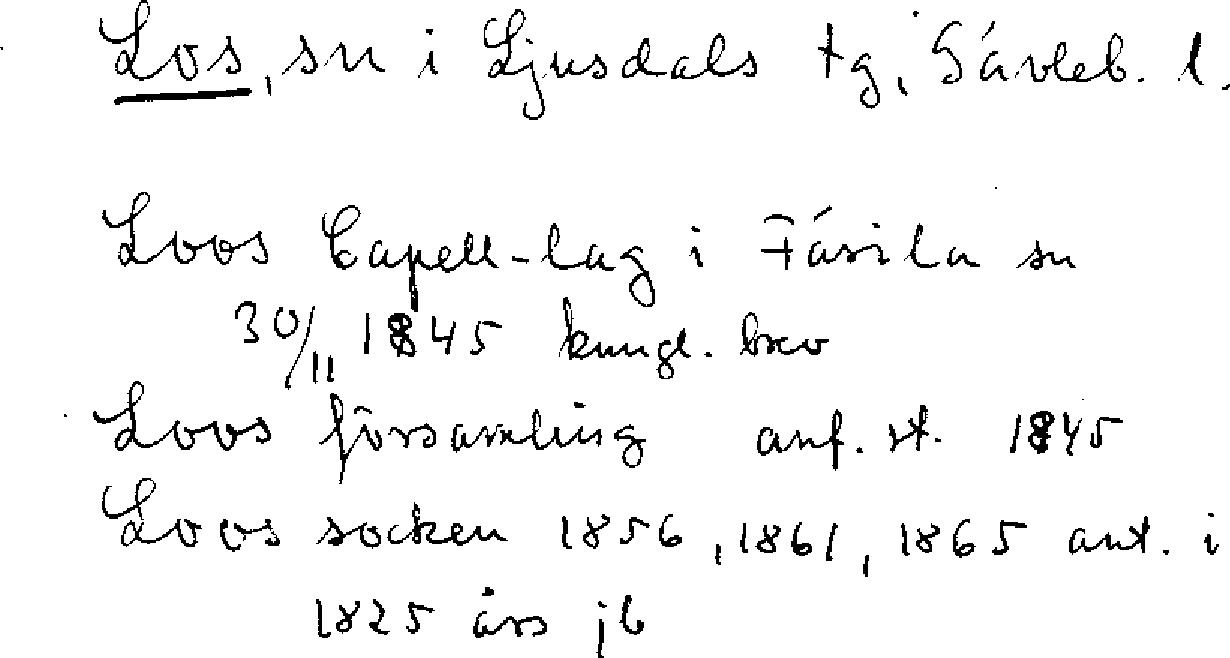 Los, sn i Ljusdals tg, Gävleb. l.
Loos Capell-lag i Färila sn
30/11 1845 kungl. brev
Loos församling anf. st. 1845
Loos socken 1856, 1861, 1865 ant. i
1825 års jb